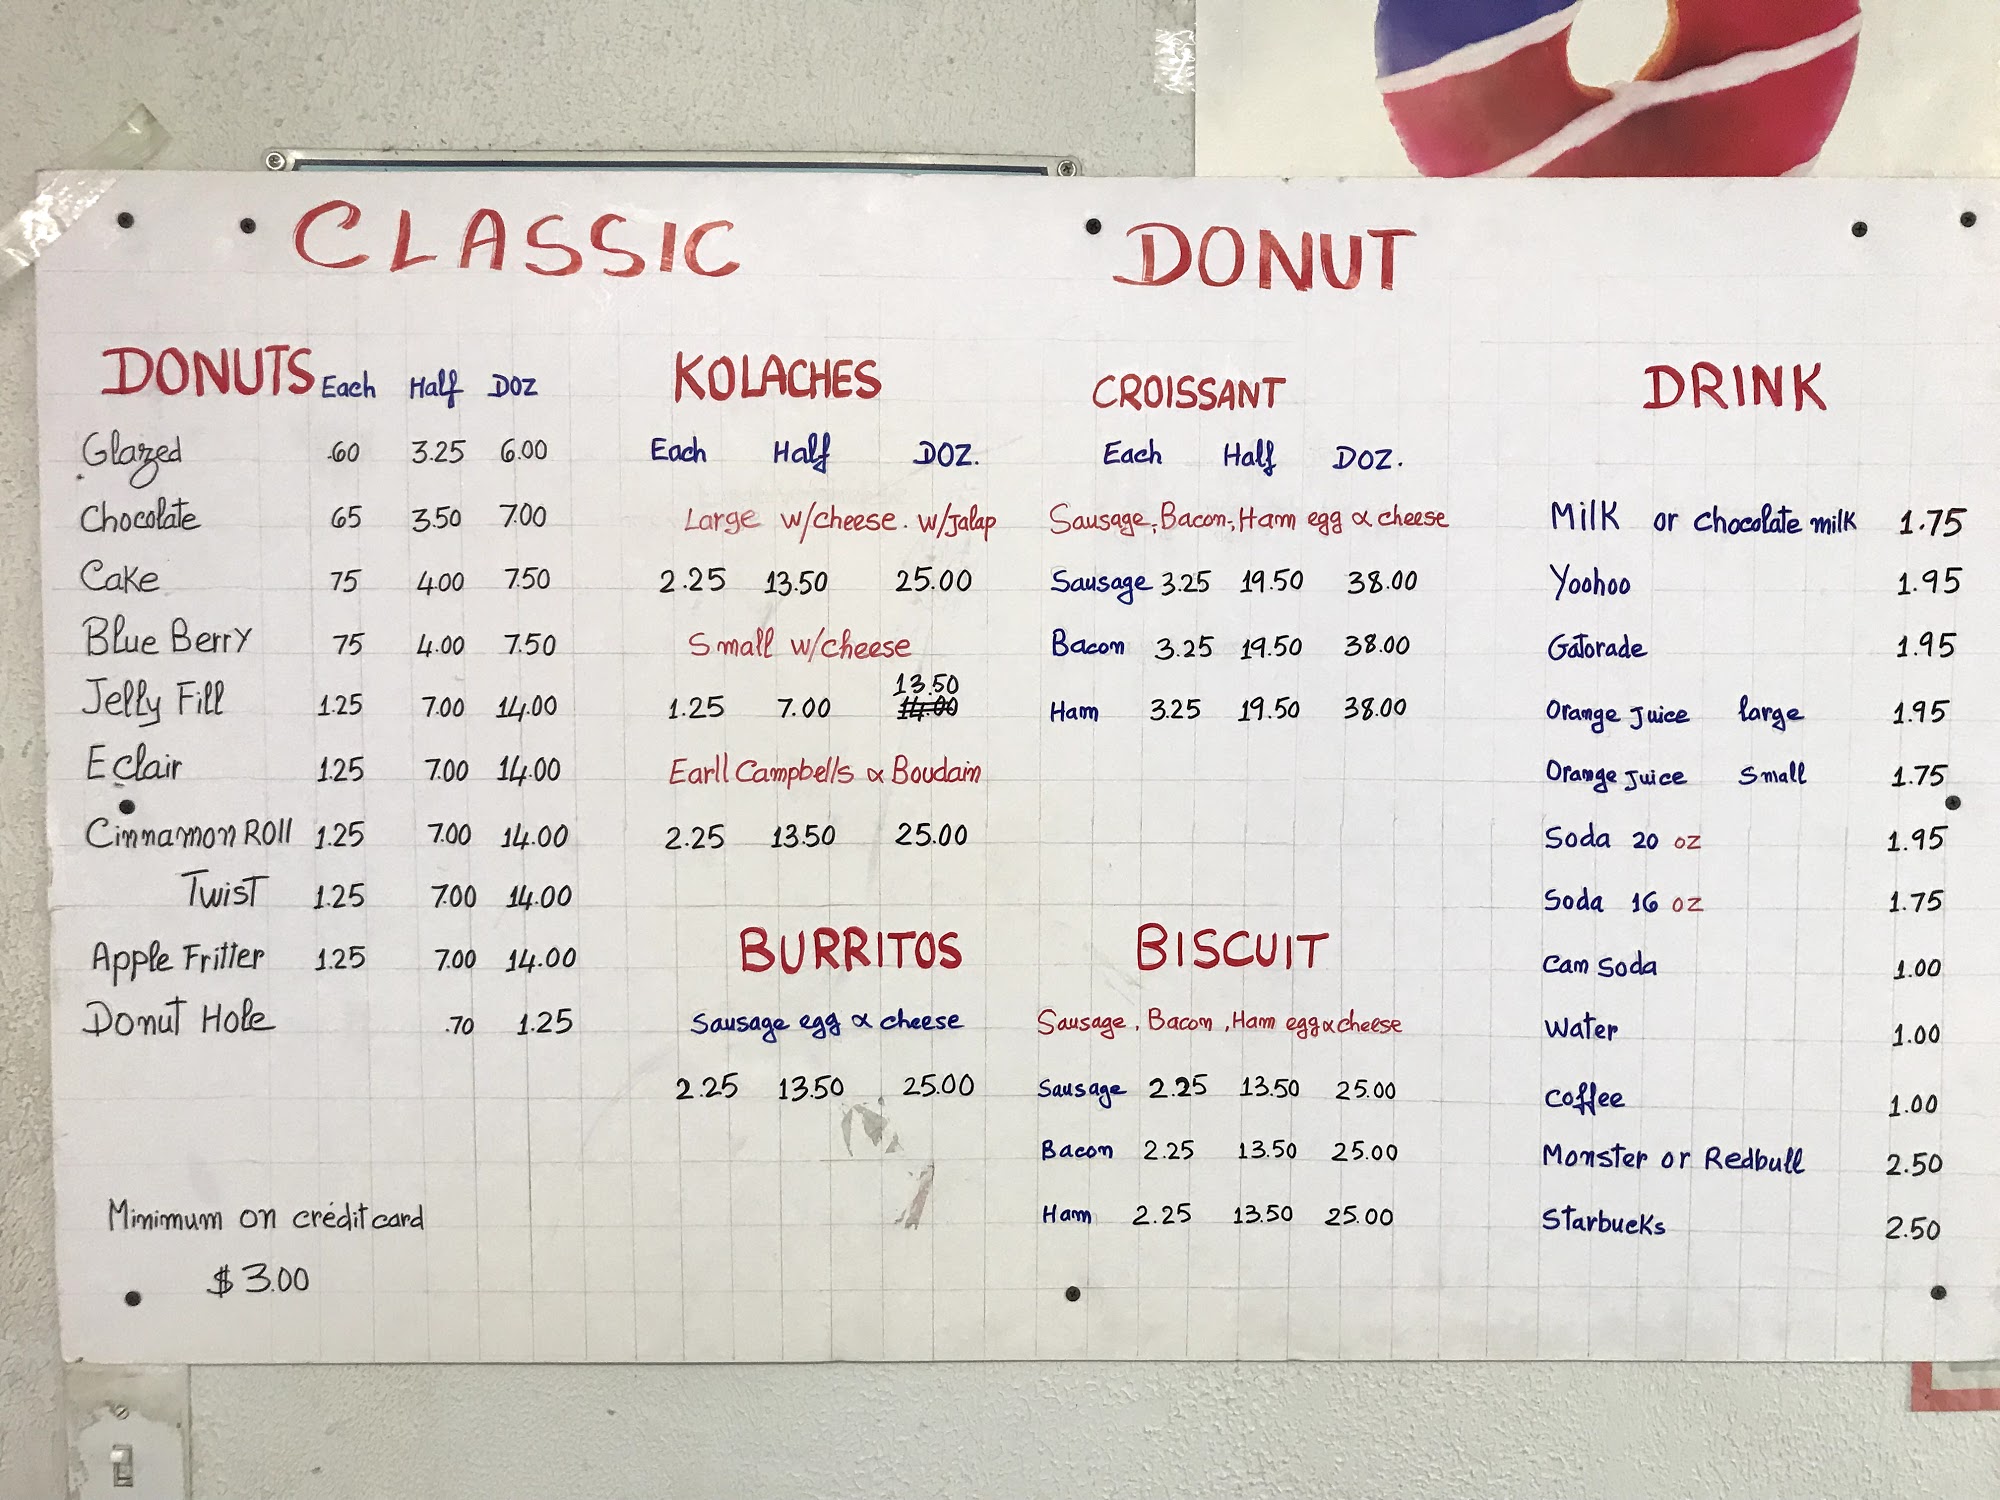 CLASSIC DONUT
DONUTS Each Half DOZ
Glazed .60 3.25 6.00
Chocolate 65 3.50 7.00
Cake 75 4.00 7.50
Blue Berry 75 4.00 7.50
Jelly Fill 1.25 7.00 14.00
Eclair 1.25 7.00 14.00
Cinnamon Roll 1.25 7.00 14.00
Twist 1.25 7.00 14.00
Apple Fritter 1.25 7.00 14.00
Donut Hole .70 1.25
Minimum on credit card
$3.00
KOLACHES
Each Half DOZ.
Large w/cheese. w/Jalap
2.25 13.50 25.00
Small w/cheese
13.50
1.25 7.00 14.00
Earll Campbells & Boudain
2.25 13.50 25.00
BURRITOS
Sausage egg & cheese
2.25 13.50 25.00
CROISSANT
Each Half DOZ.
Sausage, Bacon, Ham egg & cheese
Sausage 3.25 19.50 38.00
Bacon 3.25 19.50 38.00
Ham 3.25 19.50 38.00
BISCUIT
Sausage, Bacon, Ham egg & cheese
Sausage 2.25 13.50 25.00
Bacon 2.25 13.50 25.00
Ham 2.25 13.50 25.00
DRINK
Milk or chocolate milk 1.75
Yoohoo 1.95
Gatorade 1.95
Orange Juice large 1.95
Orange Juice Small 1.75
Soda 20 oz 1.95
Soda 16 oz 1.75
Can Soda 1.00
Water 1.00
Coffee 1.00
Monster or Redbull 2.50
Starbucks 2.50